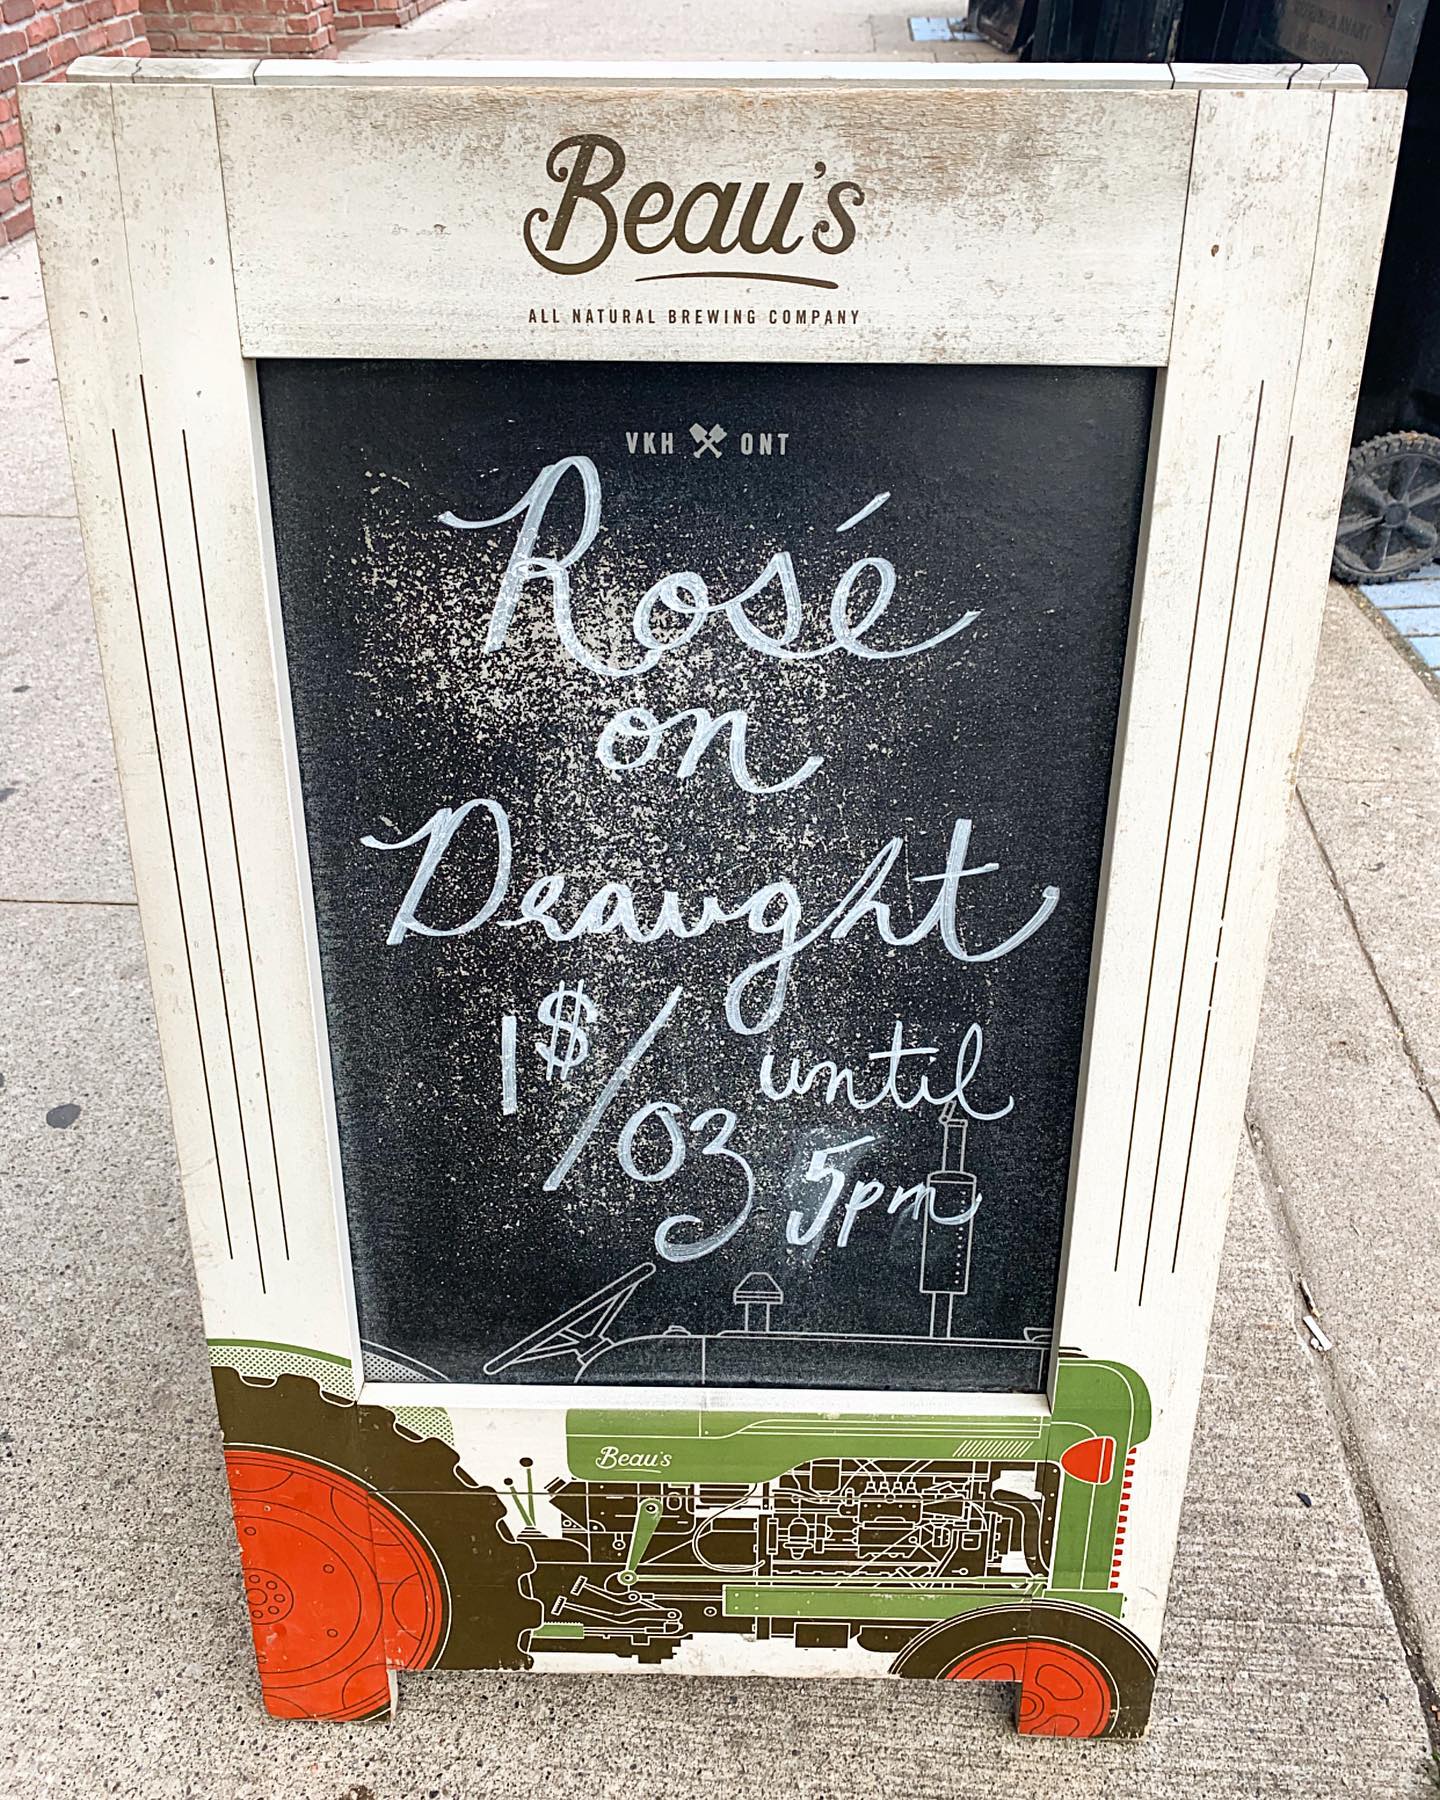 Beau's
ALL NATURAL BREWING COMPANY
VKH ONT
Rosé
on
Draught
1$/oz until
5pm
Beau's